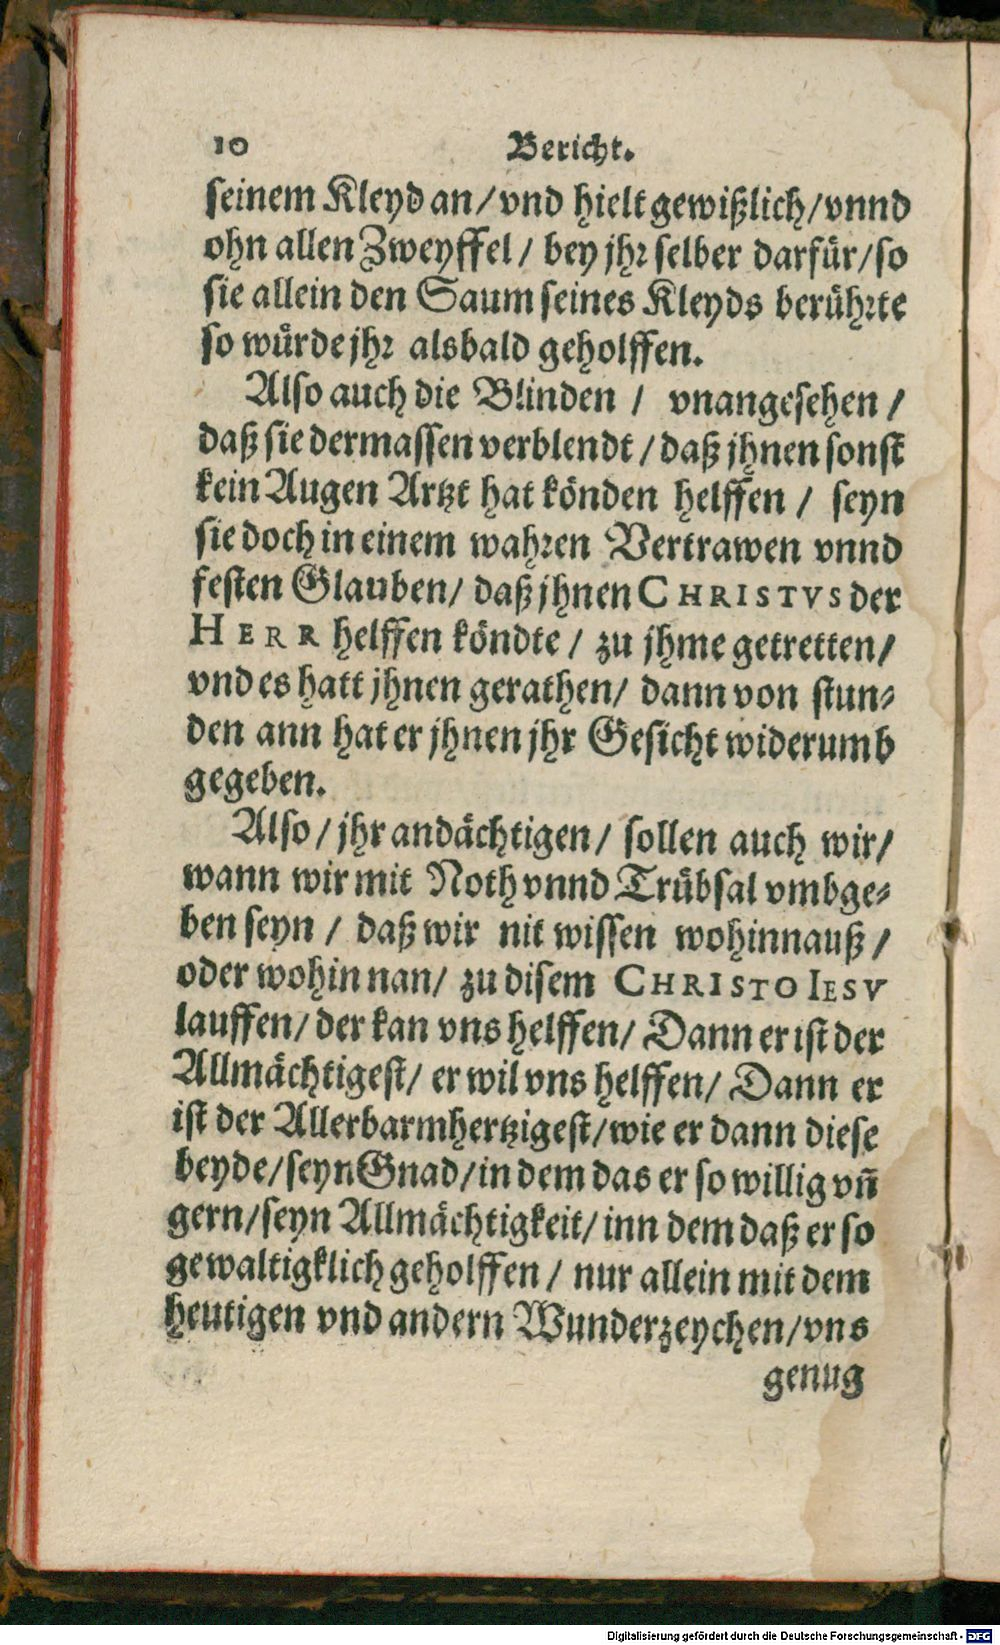 10 Bericht.
seinem Kleyd an/vnd hielt gewißlich/vnnd
ohn allen Zweyffel/ bey jhr selber darfür/so
sie allein den Saum seines Kleyds berührte
so würde jhr alsbald geholffen.
Also auch die Blinden / vnangesehen /
daß sie dermassen verblendt/daß jhnen sonst
kein Augen Artzt hat könden helffen / seyn
sie doch in einem wahren Vertrawen vnnd
festen Glauben/ daß jhnen CHRISTVS der
HERR helffen köndte / zu jhme getretten/
vnd es hatt jhnen gerathen/ dann von stun⸗
den ann hat er jhnen jhr Gesicht widerumb
gegeben.
Also/jhr andächtigen/ sollen auch wir/
wann wir mit Noth vnnd Trübsal vmbge⸗
ben seyn / daß wir nit wissen wohinnauß /
oder wohin nan/ zu disem CHRISTO IESV
lauffen/der kan vns helffen/ Dann er ist der
Allmächtigest/ er wil vns helffen/ Dann er
ist der Allerbarmhertzigest/wie er dann diese
beyde/seyn Gnad/in dem das er so willig vñ
gern/seyn Allmächtigkeit/inn dem daß er so
gewaltigklich geholffen / nur allein mit dem
heutigen vnd andern Wunderzeychen/vns
genug
Digitalisierung gefördert durch die Deutsche Forschungsgemeinschaft - DFG